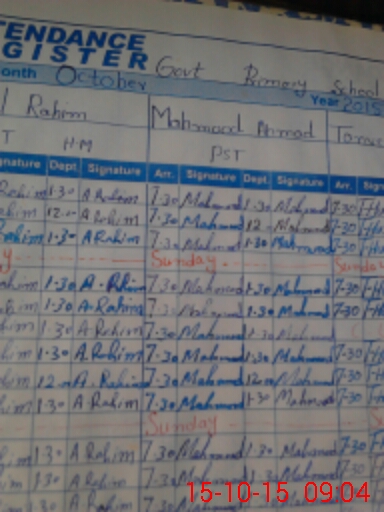 TENDANCE
GISTER Govt Primary School
onth October Year 2015
Rahim Mahmood Ahmad
T H.M PST
gnature Dept. Signature Arr. Signature Dept. Signature Arr.
Rahim 1.30 A Rahim 7.30 Mahmood 1.30 Mahmood 7-30
ahim 12.00 A Rahim 7.30 Mahmood 12 Mahmood 7-30
Rahim 1.30 A Rahim 7.30 Mahmood 1.30 Mahmood 7-30
y Sunday Sunday
ahim 1.30 A. Rahim 7.30 Mahmood 1.30 Mahmood 7-30
him 1.30 A. Rahim 7.30 Mahmood 1.30 Mahmood 7-30
him 1.30 A Rahim 7.30 Mahmood 1.30 Mahmood
him 1.30 A. Rahim 7.30 Mahmood 1.30 Mahmood 7-30
him 12.00 A. Rahim 7.30 Mahmood 12.00 Mahmood 7-30
him 1.30 A Rahim 7.30 Mahmood 1.30 Mahmood 7-30
Sunday
him 1.30 A Rahim 7.30 Mahmood 1.30 Mahmood 7-30
him 1.30 A Rahim 7.30 Mahmood 1.30 Mahmood
15-10-15 09:04